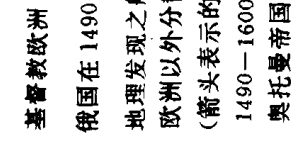 基督教欧洲
俄国在 1490
地理发现之
欧洲以外分
(箭头表示的
1490－1600
奥托曼帝国